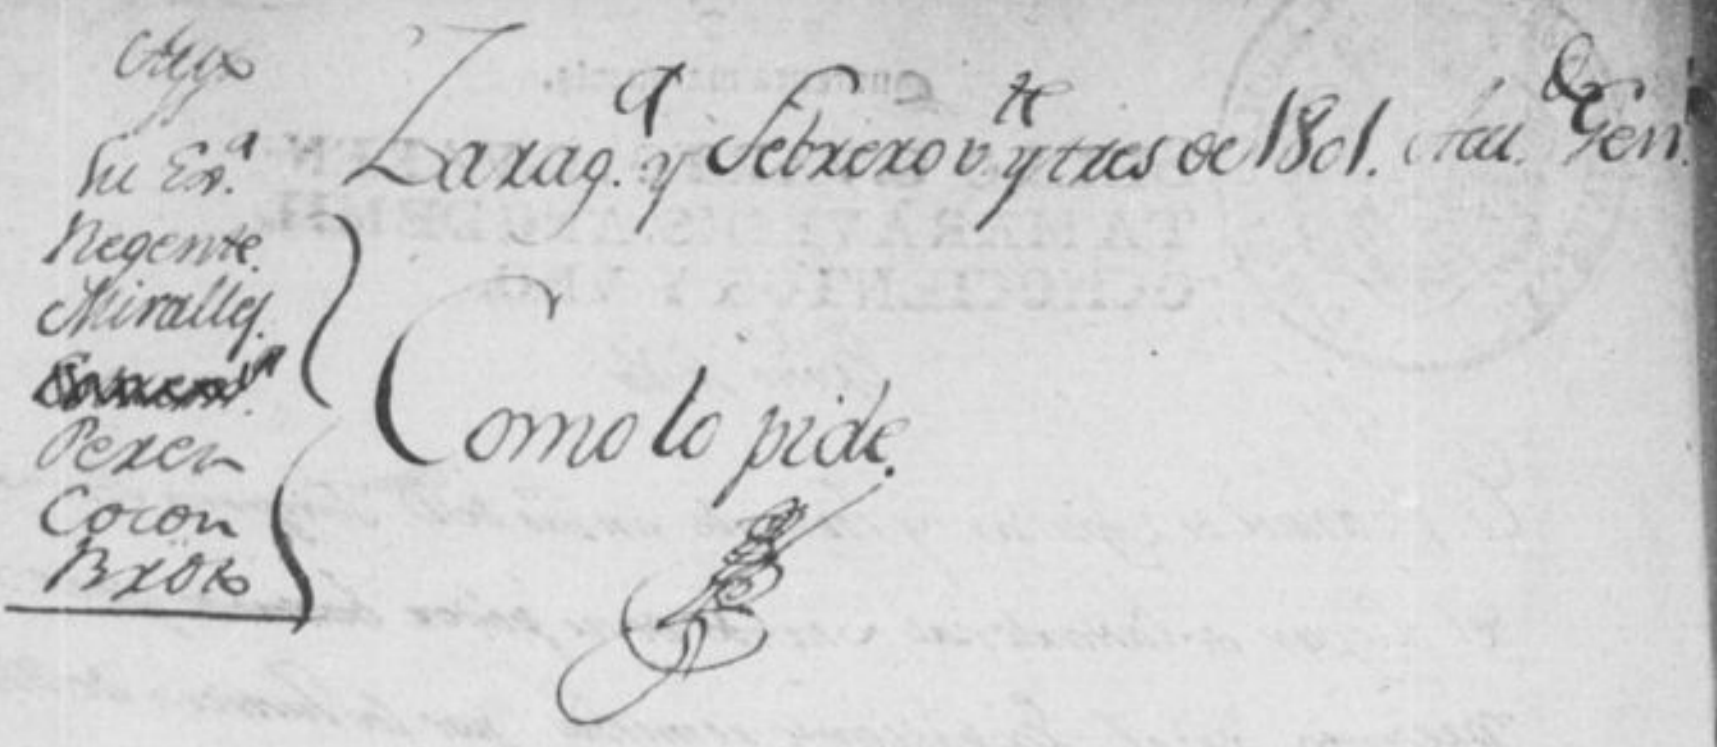 Su Ex.ª
Regente.
Miralles.
Perez
Cocon
Broto
Zarag.ª y Febrero v.te y tres de 1801. Au.da Gen.l
Como lo pide.